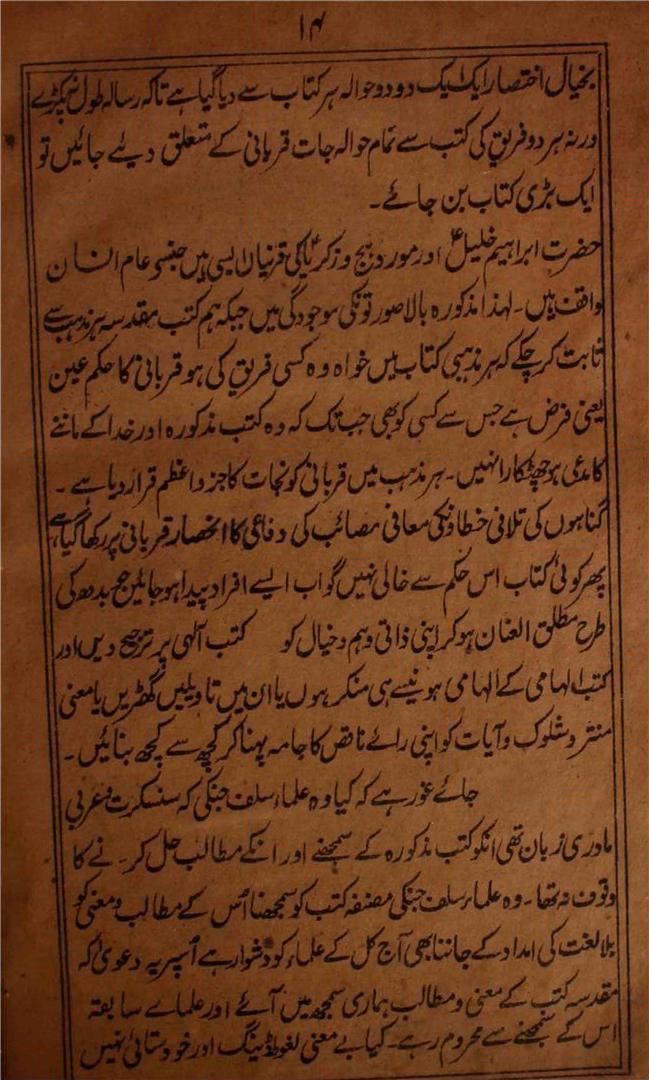 ۱۴
بخیال اختصار ایک ایک دو دو حوالہ ہر کتاب سے دیا گیا ہے تاکہ رسالہ طول نہ پکڑے
ورنہ ہر دو فریق کی کتب سے تمام حوالہ جات قربانی کے متعلق دیئے جائیں تو
ایک بڑی کتاب بن جائے۔
حضرت ابراہیم خلیلؑ اور مورد ہج و زکریاؑ کی قربانیاں ایسی ہیں جنسے عام انسان
واقف ہیں۔ لہذا مذکورہ بالا صورتونکی موجودگی میں جبکہ ہم کتب مقدسہ ہر مذہب سے
ثابت کرچکے کہ ہر مذہبی کتاب میں خواہ وہ کسی فریق کی ہو قربانی کا حکم عین
یعنی فرض ہے جس سے کسی کو بھی جب تک کہ وہ کتب مذکورہ اور خدا کے ماننے
کا مدعی ہو چھٹکارا نہیں۔ ہر مذہب میں قربانی کو نجات کا جزو اعظم قرار دیا ہے۔
گناہوں کی تلافی خطاونکی معافی مصائب کی دفاعی کا انحصار قربانی پر رکھا گیا ہے
پھر کوئی کتاب اس حکم سے خالی نہیں گو اب ایسے افراد پیدا ہوجائیں جو بدھ کی
طرح مطلق العنان ہوکر اپنی ذاتی وہم و خیال کو کتب آلہی پر ترجیح دیں اور
کتب الہامی کے الہامی ہونیسے ہی منکر ہوں یا ان میں تاویلیں گھڑیں یا معنی
منتر و شلوک و آیات کو اپنی رائے ناقص کا جامہ پہنا کر کچھ سے کچھ بنائیں۔
جائے غور ہے کہ کیا وہ علماء سلف جنکی کہ سنسکرت و عربی
مادری زبان تھی انکو کتب مذکورہ کے سمجھنے اور انکے مطالب حل کرنے کا
وقوف نہ تھا۔ وہ علماء سلف جنکی مصنفہ کتب کو سمجھنا اُس کے مطالب و معنی کو
بلا لغت کی امداد کے جاننا بھی آج کل کے علماء کو دشوار ہے اُسپر یہ دعویٰ کہ
مقدسہ کتب کے معنی و مطالب ہماری سمجھ میں آئے اور علمائے سابقہ
اس کے سمجھنے سے محروم رہے۔ کیا بے معنی لغو ڈینگ اور خودستائی نہیں